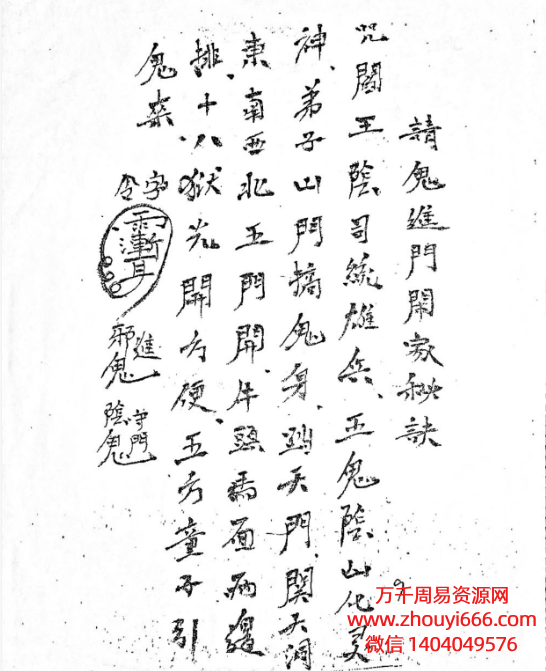 請鬼進門鬧家秘訣
咒閻王陰司統雄兵、五鬼陰山化灵
神、弟子山門搞鬼身、踏天門、関天洞
東南西北五門開、牛頭馬面兩邊
排、十八獄光開方便、五方童子引
鬼來
令字
雨漸耳
進
邪鬼
守門
陰鬼
万千周易资源网
www.zhouyi666.com
微信 1404049576